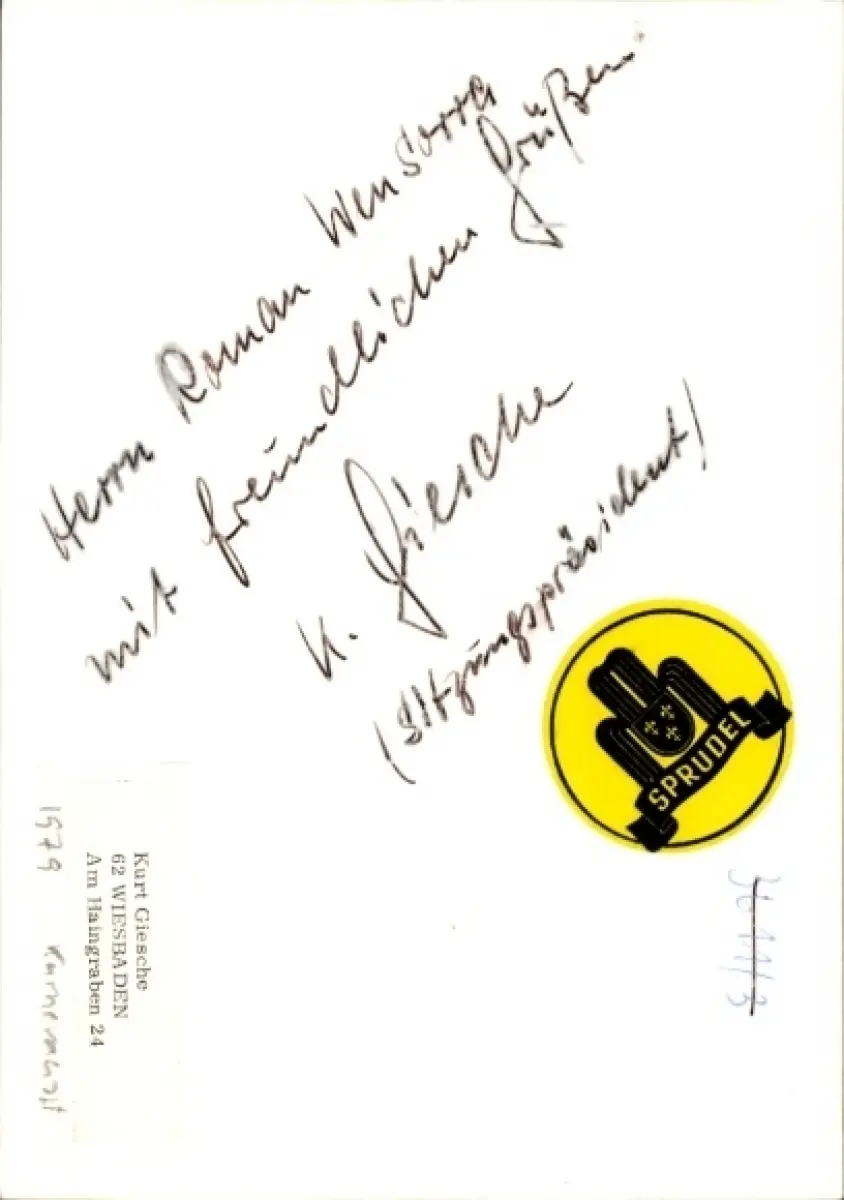 Herrn Roman Wensorra
mit freundlichen Grüßen
K. Giesche
(Sitzungspräsident)
SPRUDEL
Kurt Giesche
62 WIESBADEN
Am Haingraben 24
1979